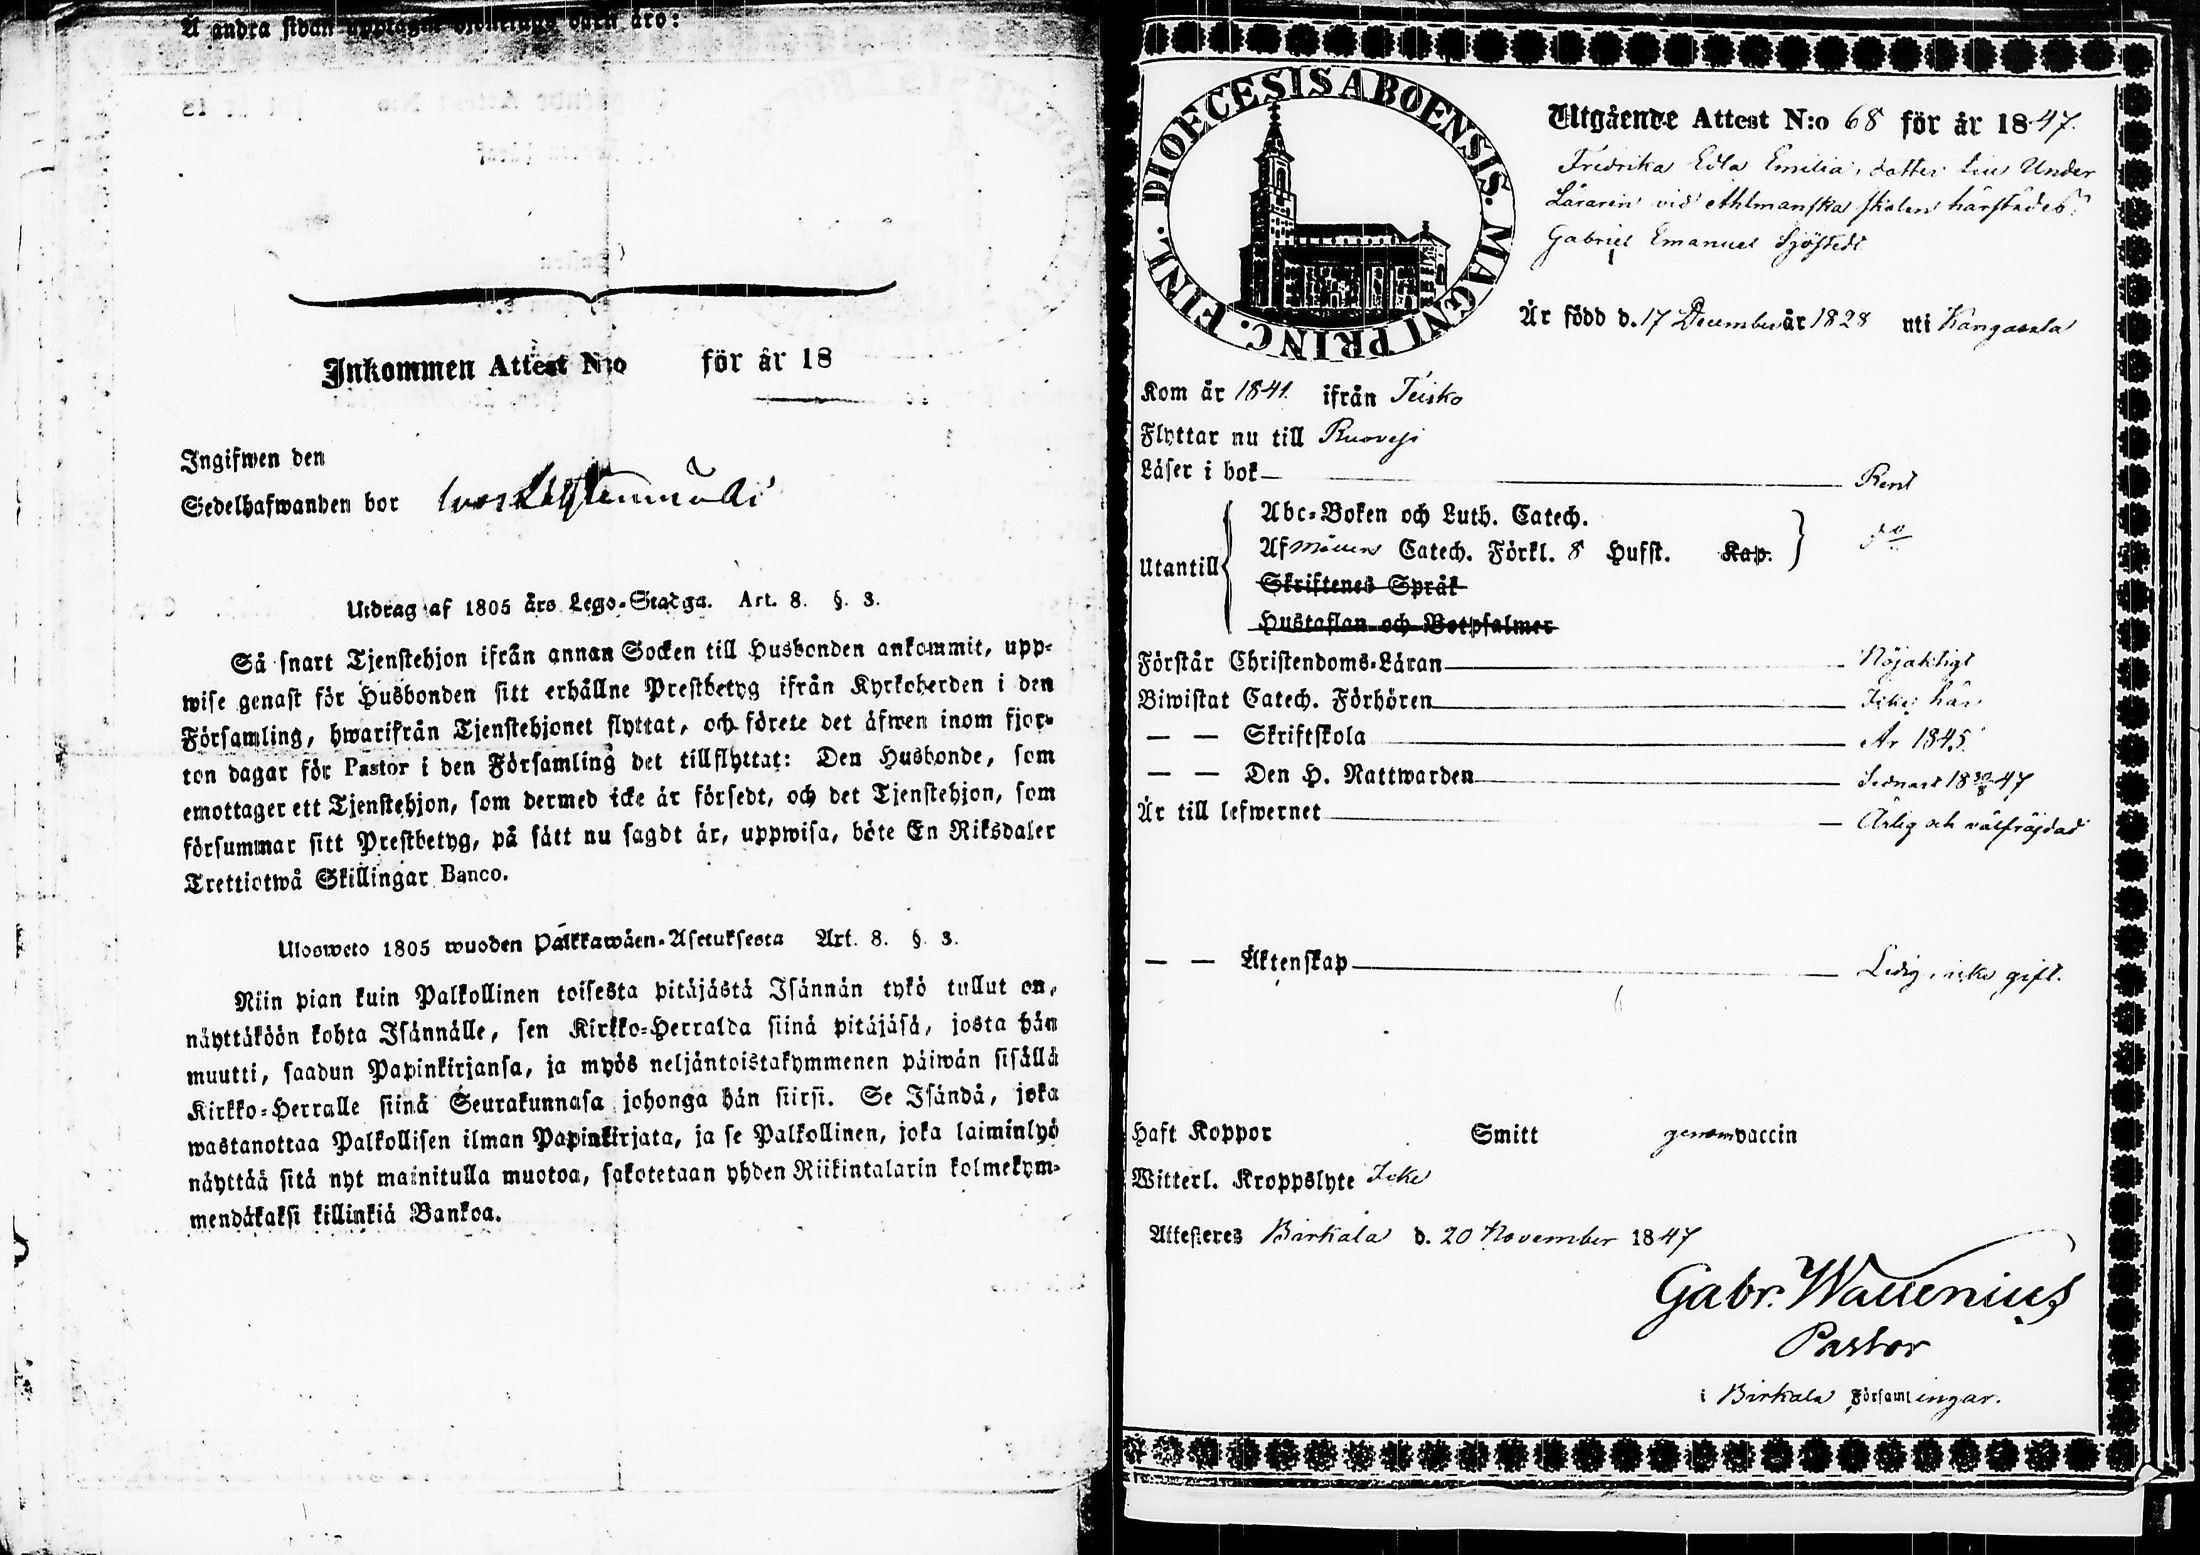 Å andra sidan
Inkommen Attest N:o för år 18
Ingifwen den
Sedelhafwanden bor
Utdrag af 1805 års Lego-Stadga. Art. 8. §. 3.
Så snart Tjenstehjon ifrån annan Socken till Husbonden ankommit, upp-
wise genast för Husbonden sitt erhållne Prestbetyg ifrån Kyrkoherden i den
Församling, hwarifrån Tjenstehjonet flyttat, och förete det äfwen inom fjor-
ton dagar för Pastor i den Församling det tillflyttat: Den Husbonde, som
emottager ett Tjenstehjon, som dermed icke är försedt, och det Tjenstehjon, som
försummar sitt Prestbetyg, på sätt nu sagdt är, uppwisa, böte En Riksdaler
Trettiotwå Skillingar Banco.
Ulosweto 1805 wuoden Palkkawäen-Asetuksesta Art. 8. §. 3.
Niin pian kuin Palkollinen toisesta pitäjästä Isännän tykö tullut on,
näyttäköön kohta Isännälle, sen Kirkko-Herralda siinä pitäjäsä, josta hän
muutti, saadun Papinkirjansa, ja myös neljäntoistakymmenen päiwän sisällä
Kirkko-Herralle siinä Seurakunnasa johonga hän siirsi. Se Isändä, joka
wastanottaa Palkollisen ilman Papinkirjata, ja se Palkollinen, joka laiminlyö
näyttää sitä nyt mainitulla muotoa, sakotetaan yhden Riikintalarin kolmekym-
mendäkaksi killinkiä Bankoa.
DIOECESIS ABOENSIS. MAGNI PRINC. FINL.
Utgående Attest N:o 68 för år 1847.
Fredrika Edla Emilia, dotter till Under
Läraren vid Ahlmanska skolan härstädes
Gabriel Emanuel Sjöstedt
Är född d. 17 December år 1828 uti Kangasala
Kom år 1841 ifrån Teisko
Flyttar nu till Ruovesi
Läser i bok Rent
Abc-Boken och Luth. Catech.
Utantill Af Möllers Catech. Förkl. 8 Hufst. Kap. do
Skriftenes Språk
Hustaflan och Botpsalmer
Förstår Christendoms-Läran Nöjaktigt
Biwistat Catech. Förhören Icke här
— — Skriftskola År 1845
— — Den H. Nattwarden Sednast 18 47
Är till lefwernet Ärlig och välfräjdad
— — Äktenskap Ledig, icke gift.
Haft Koppor Smitt genom vaccin
Witterl. Kroppslyte Icke
Attesteres Birkala d. 20 November 1847
Gabr. Wallenius
Pastor
i Birkala Församlingar.